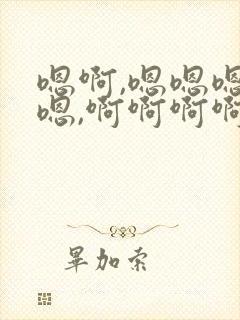 嗯啊,嗯嗯嗯
嗯,啊啊啊啊
畢加索